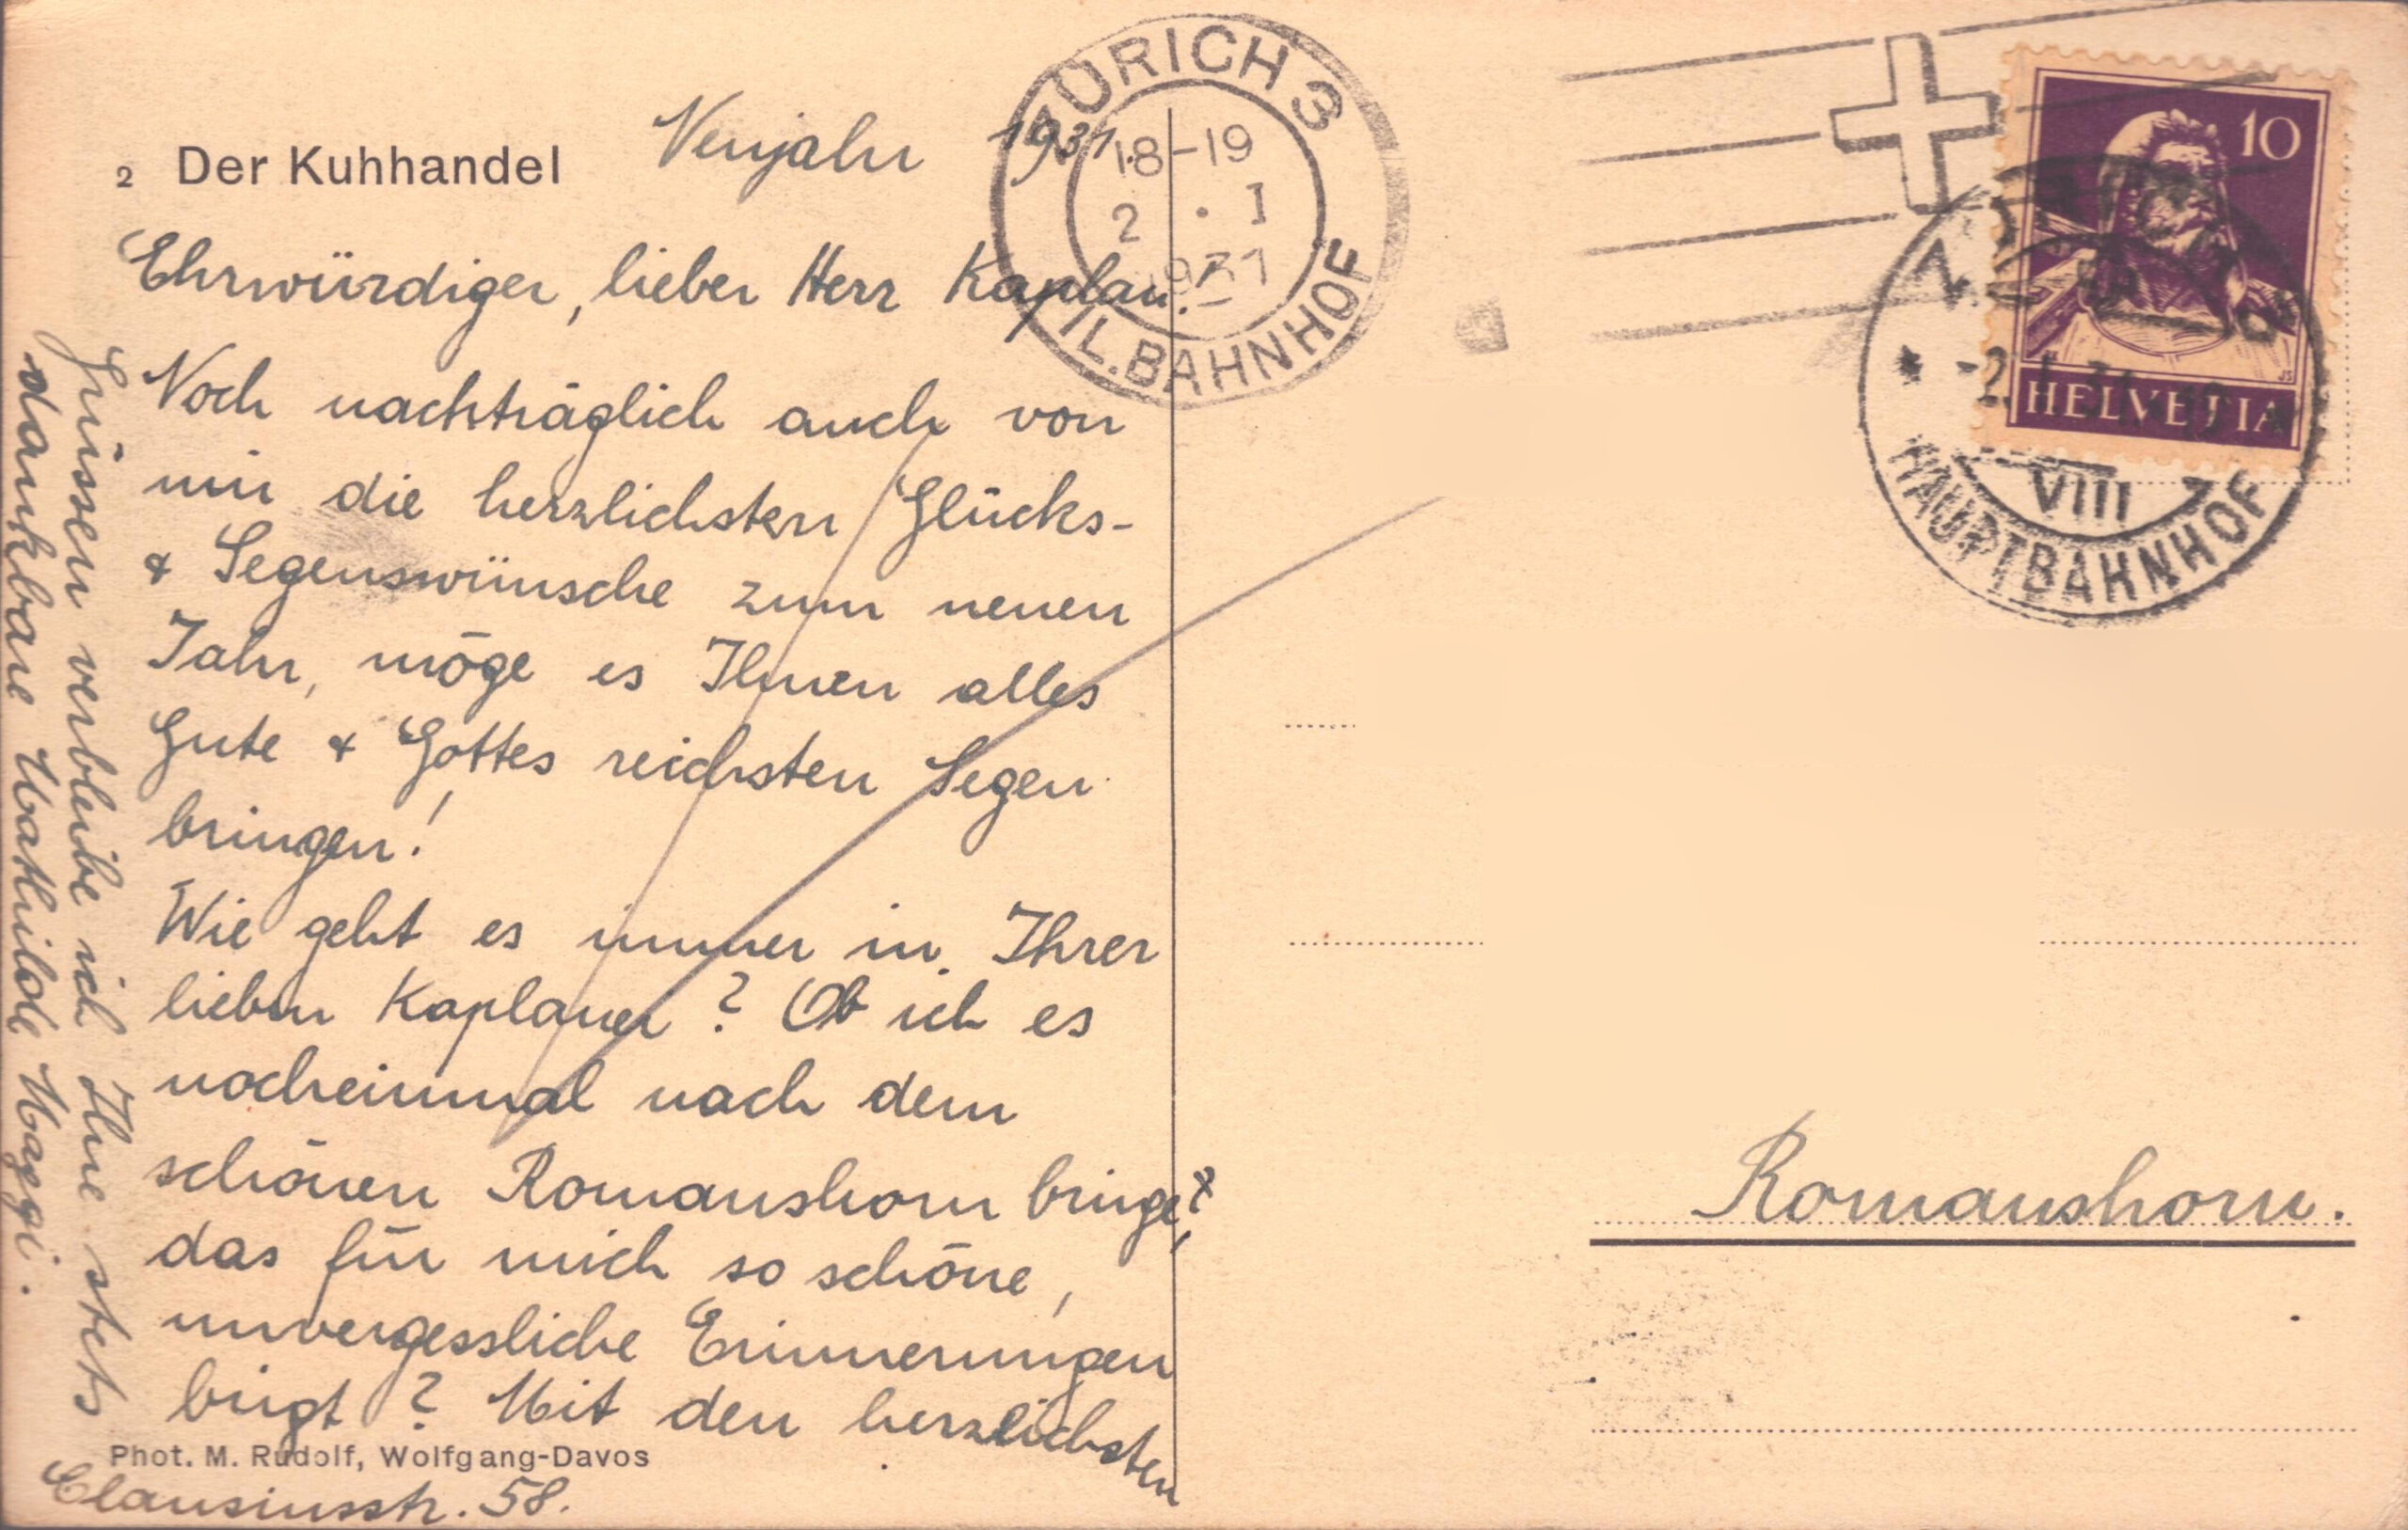 2 Der Kuhhandel
Neujahr 1931.
Ehrwürdiger, lieber Herr Kaplan!
Noch nachträglich auch von
mir die herzlichsten Glücks-
& Segenswünsche zum neuen
Jahr, möge es Ihnen alles
Gute & Gottes reichsten Segen
bringen!
Wie geht es immer in Ihrer
lieben Kaplanei? Ob ich es
nocheinmal nach dem
schönen Romanshorn bringe,
das für mich so schöne,
unvergessliche Erinnerungen
birgt? Mit den herzlichsten
Grüssen verbleibe ich Ihre stets
dankbare Mathilde Maggi.
Phot. M. Rudolf, Wolfgang-Davos
Clausiusstr. 58.
ZÜRICH 3
18-19
2 . I
1931
FIL.BAHNHOF
10
HELVETIA
-2. I. 31
VIII
HAUPTBAHNHOF
Romanshorn.